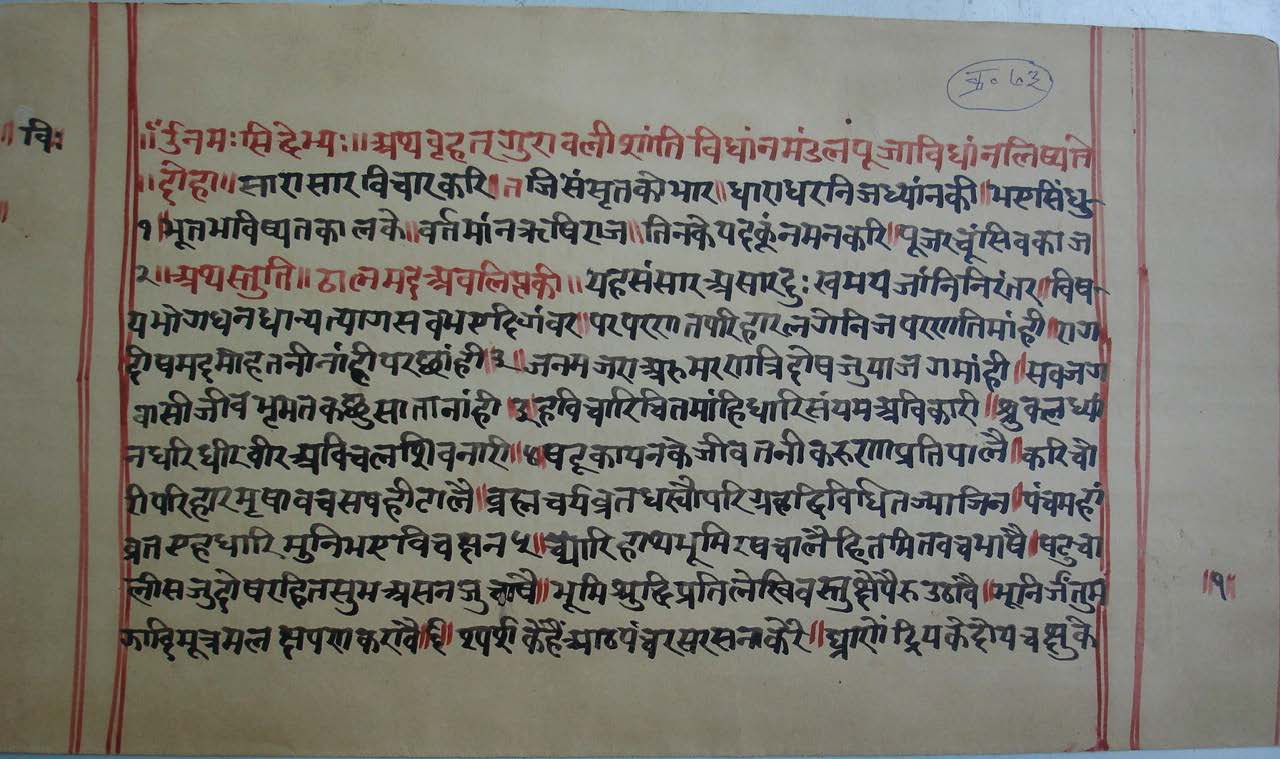 क्र॰ ७३
॥ वि॰
॥ र्उनमःसिद्धेभ्यः॥ अथ वृहत् गुरावली शांति विधांन मंडल पूजा विधांन लिष्यते
॥ दोहा॥ सारासार विचार करि॥ तजि संसृत को भार॥ धाराधर निज ध्यांन की॥ भए सिंधु
१॥ भूत भाविष्यत काल के॥ वर्त्तमांन ऋषिराज॥ तिनकै पद कूं नमन करि॥ पूज रचूं सिव काज
२॥ अथ स्तुति॥ ढाल मद अवलिप्त की॥ यह संसार असार दुःखमय जांनि निरंतर॥ विष
य भोग धन धान्य त्याग सब भए दिगंवर॥ पर परणत परिहार लगे निज परणति मांही॥ राग
द्वोष मद मोह तनी नांही परछांही ३॥ जनम जरा अरु मरण त्रिदोष जु या जग मांही॥ सब जग
वासी जीव भृमत कछु साता नांही॥ इह विचारि चित मांहि धारि संयम अविकारी॥ शुक्ल ध्यां
न धरि धीर वीर अविचल शिव नारी॥ ४ षट् काय न के जीव तनी करुणा प्रतिपालै॥ करि चो
री परिहार मृषा वच सब ही टालै॥ व्रह्मचर्य व्रत धर्‍यौ परिग्रह द्विविधि तज्या जिन॥ पंच महां
व्रत एह धारि मुनि भए विचक्षन ५॥ च्यारि हाथ भूमि रष चालै हित मित वच भाषै॥ षट् चा
लीस जु दोष रहित सुभ असन जु चाषै॥ भूमि शुद्धि प्रतिलेखि वस्तु क्षेपै रु उठावै॥ भू निर्जंतु म
ऊारि मूत्र मल क्षपण करावै ६॥ स्पर्श के हैं आठ पंच रस रसना केरे॥ घ्राणेंद्रिय के दोय चक्षु के
॥१॥